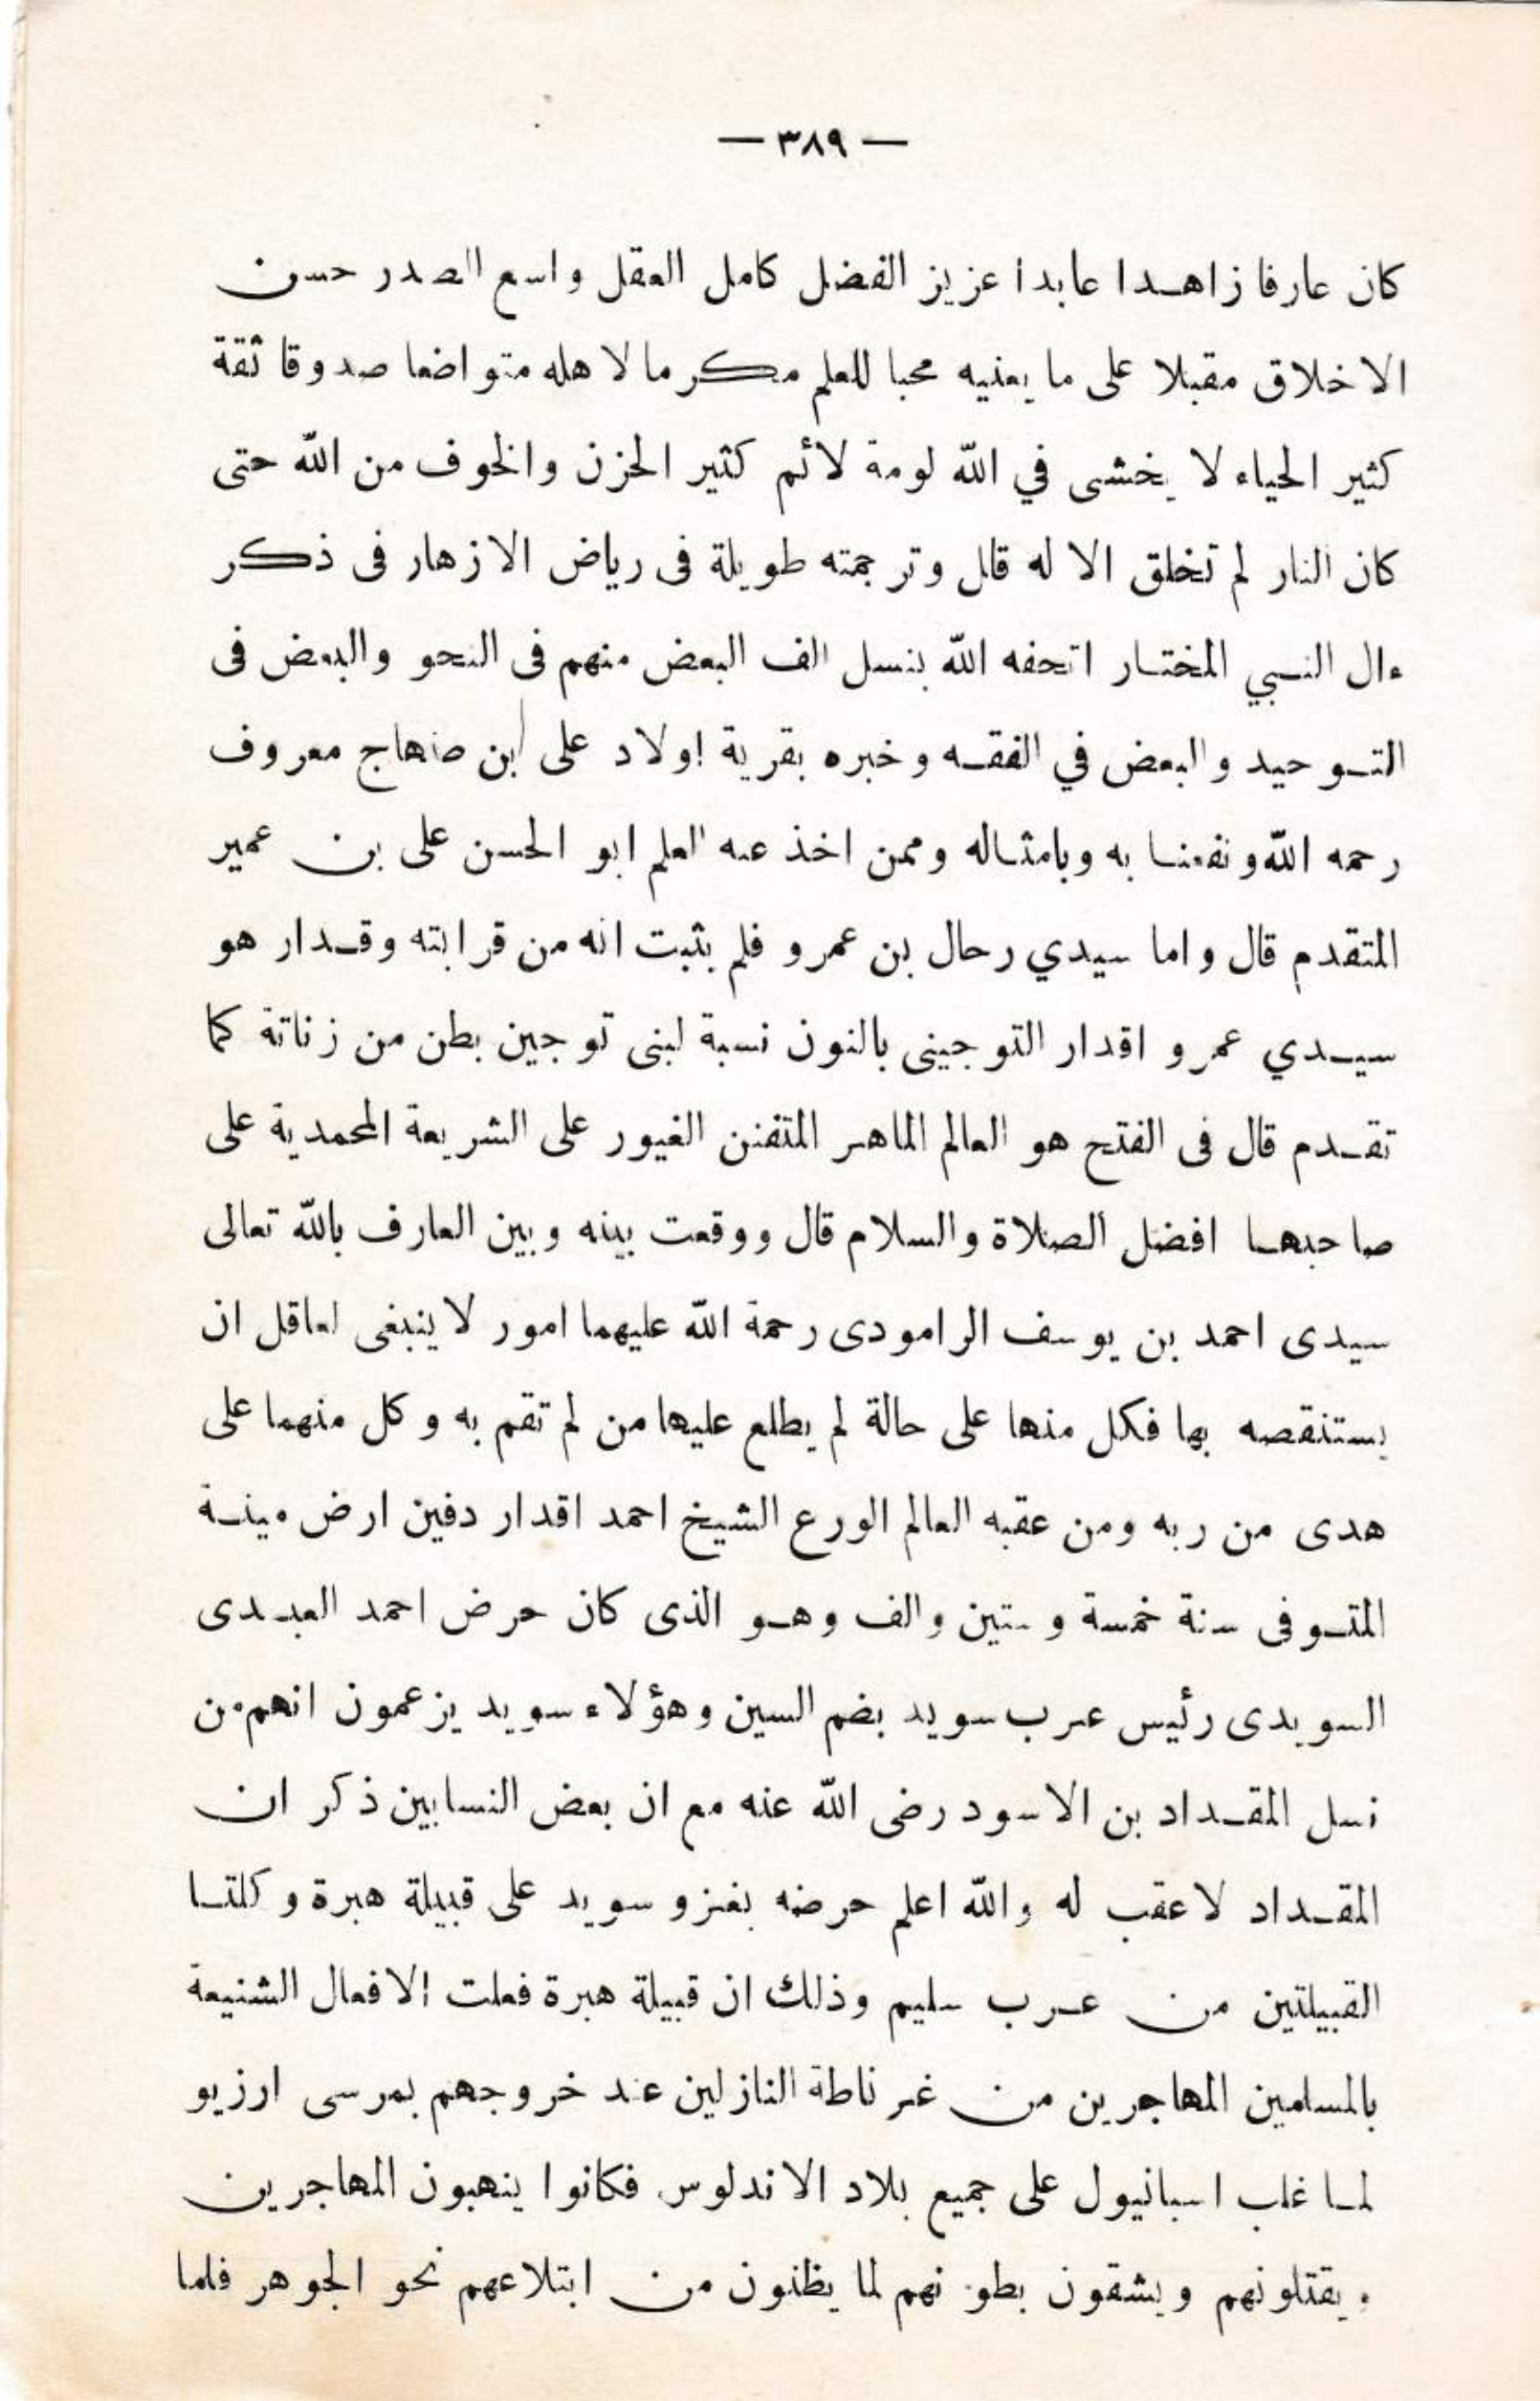 — ٣٨٩ —
كان عارفا زاهدا عابدا عزيز الفضل كامل العقل واسع الصدر حسن
الاخلاق مقبلا على ما يعنيه محبا للعلم مكرما لاهله متواضعا صدوقا ثقة
كثير الحياء لا يخشى في الله لومة لائم كثير الحزن والخوف من الله حتى
كان النار لم تخلق الا له قال وترجمته طويلة فى رياض الازهار فى ذكر
ءال النبي المختار اتحفه الله بنسل الف البعض منهم فى النحو والبعض فى
التوحيد والبعض في الفقه وخبره بقرية اولاد على ابن صنهاج معروف
رحمه الله ونفعنا به وبامثاله وممن اخذ عنه العلم ابو الحسن على بن عمير
المتقدم قال واما سيدي رحال بن عمرو فلم يثبت انه من قرابته وقدار هو
سيدي عمرو اقدار التوجينى بالنون نسبة لبنى توجين بطن من زناتة كما
تقدم قال فى الفتح هو العالم الماهر المتفنن الغيور على الشريعة المحمدية على
صاحبها افضل الصلاة والسلام قال ووقعت بينه وبين العارف بالله تعالى
سيدى احمد بن يوسف الرامودى رحمة الله عليهما امور لا ينبغى لعاقل ان
يستنقصه بها فكل منها على حالة لم يطلع عليها من لم تقم به وكل منهما على
هدى من ربه ومن عقبه العالم الورع الشيخ احمد اقدار دفين ارض مينة
المتوفى سنة خمسة وستين والف وهو الذى كان حرض احمد العبدى
السويدى رئيس عرب سويد بضم السين وهؤلاء سويد يزعمون انهم من
نسل المقداد بن الاسود رضى الله عنه مع ان بعض النسابين ذكر ان
المقداد لا عقب له والله اعلم حرضه بغزو سويد على قبيلة هبرة وكلتا
القبيلتين من عرب سليم وذلك ان قبيلة هبرة فعلت الافعال الشنيعة
بالمسلمين المهاجرين من غرناطة النازلين عند خروجهم بمرسى ارزيو
لما غلب اسبانيول على جميع بلاد الاندلوس فكانوا ينهبون المهاجرين
ويقتلونهم ويشقون بطونهم لما يظنون من ابتلاعهم نحو الجوهر فلما